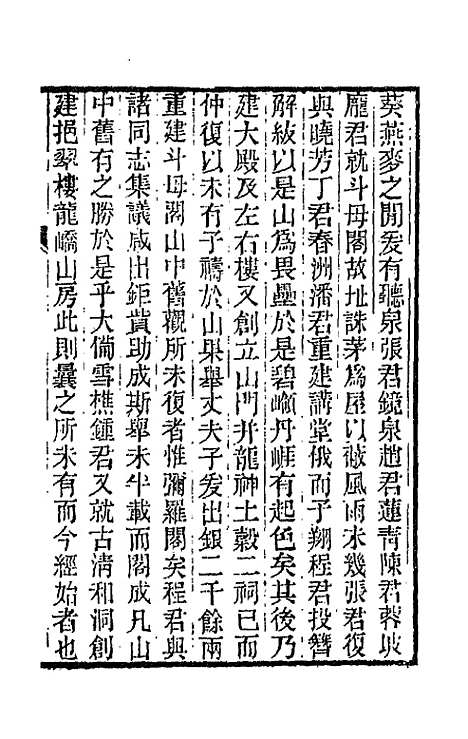 葵燕麥之閒爰有聽泉張君鏡泉趙君蓮靑陳君蓉坡
龐君就斗母閣故址誅茅爲屋以蔽風雨未幾張君復
與曉芳丁君春洲潘君重建講堂俄而予翔程君投簪
解紱以是山爲畏壘於是碧巘丹崕有起色矣其後乃
建大殿及左右樓又創立山門幷龍神土穀二祠已而
仲復以未有子禱於山果舉丈夫子爰出銀二千餘兩
重建斗母閣山中舊觀所未復者惟彌羅閣矣程君與
諸同志集議咸出鉅貲助成斯舉未半載而閣成凡山
中舊有之勝於是乎大備雪樵鍾君又就古淸和洞創
建挹翠樓龍嶠山房此則曩之所未有而今經始者也